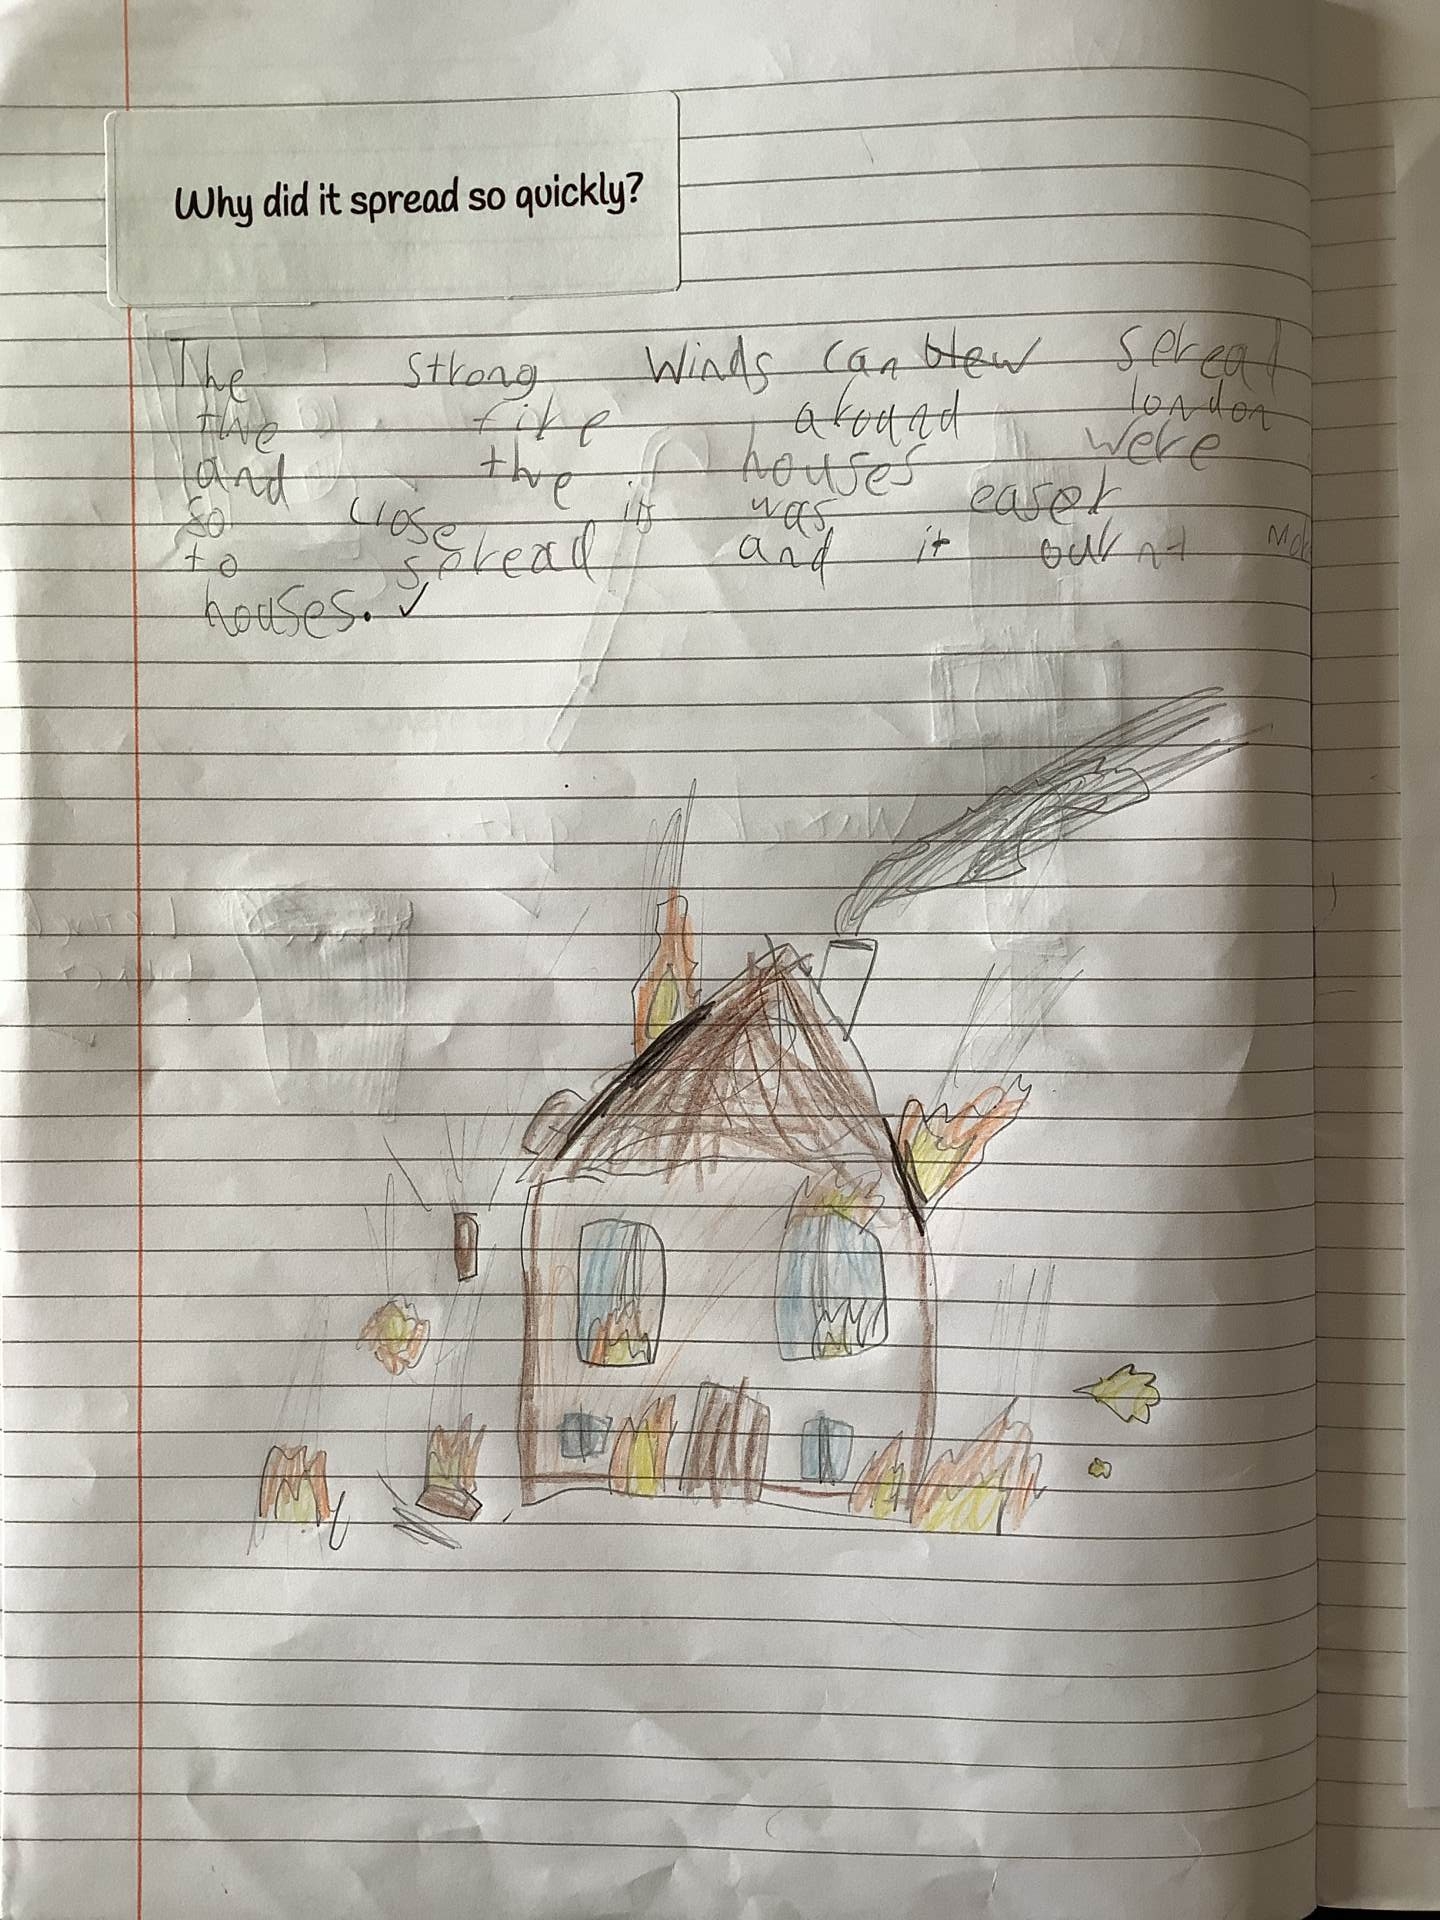 Why did it spread so quickly?
The strong winds can blew spread
the fire around london
and the houses were
so close it was easer
to spread and it burnt
houses. ✓